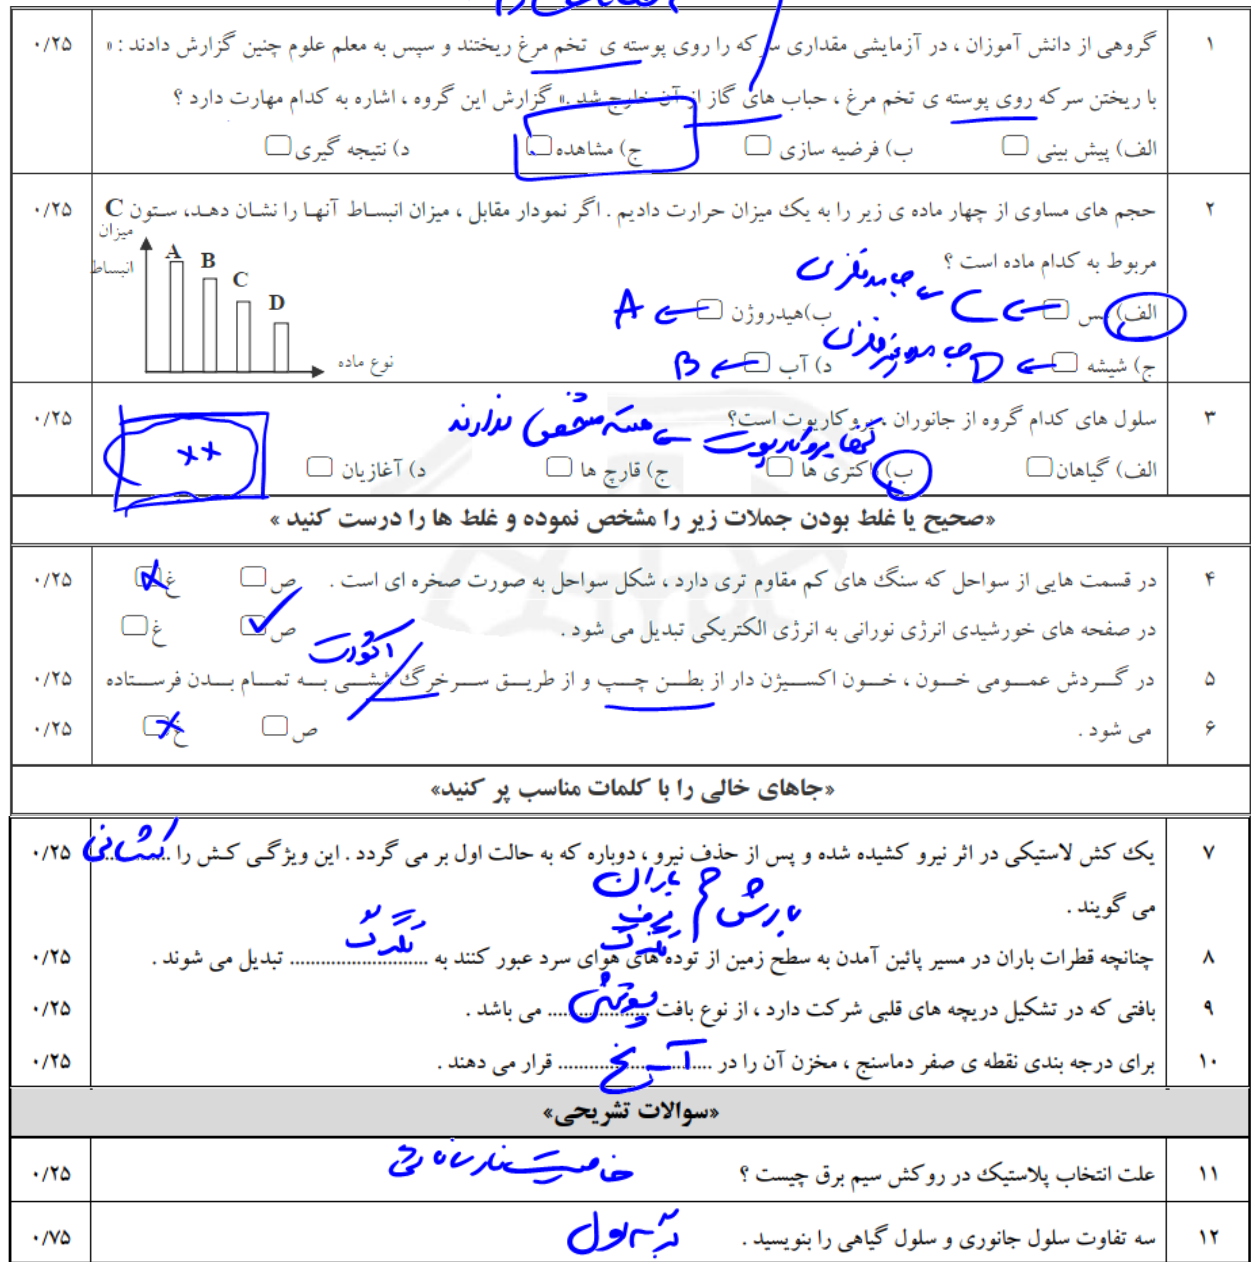 ۱ گروهی از دانش آموزان ، در آزمایشی مقداری سرکه را روی پوسته ی تخم مرغ ریختند و سپس به معلم علوم چنین گزارش دادند : « ۰/۲۵
با ریختن سرکه روی پوسته ی تخم مرغ ، حباب های گاز از آن خارج شد .» گزارش این گروه ، اشاره به کدام مهارت دارد ؟
الف) پیش بینی ب) فرضیه سازی ج) مشاهده د) نتیجه گیری
۲ حجم های مساوی از چهار ماده ی زیر را به یک میزان حرارت دادیم . اگر نمودار مقابل ، میزان انبساط آنها را نشان دهد، ستون C ۰/۲۵
مربوط به کدام ماده است ؟
جامد فلزی
الف) مس C ب)هیدروژن A
جامد غیرفلزی
ج) شیشه D د) آب B
میزان انبساط
A B C D
نوع ماده
۳ سلول های کدام گروه از جانوران ، پروکاریوت است؟ ۰/۲۵
پروکاریوت هسته مشخص ندارند
الف) گیاهان ب) باکتری ها ج) قارچ ها د) آغازیان
«صحیح یا غلط بودن جملات زیر را مشخص نموده و غلط ها را درست کنید »
۴ در قسمت هایی از سواحل که سنگ های کم مقاوم تری دارد ، شکل سواحل به صورت صخره ای است . ص غ ۰/۲۵
در صفحه های خورشیدی انرژی نورانی به انرژی الکتریکی تبدیل می شود . ص غ
آئورت
۵ در گردش عمومی خون ، خون اکسیژن دار از بطن چپ و از طریق سرخرگ ششی به تمام بدن فرستاده ۰/۲۵
۶ می شود . ص غ ۰/۲۵
«جاهای خالی را با کلمات مناسب پر کنید»
۷ یک کش لاستیکی در اثر نیرو کشیده شده و پس از حذف نیرو ، دوباره که به حالت اول بر می گردد . این ویژگی کش را کشسانی ۰/۲۵
می گویند .
بارش باران
برف
تگرگ
۸ چنانچه قطرات باران در مسیر پائین آمدن به سطح زمین از توده های هوای سرد عبور کنند به .......................... تبدیل می شوند . ۰/۲۵
تگرگ
۹ بافتی که در تشکیل دریچه های قلبی شرکت دارد ، از نوع بافت پوششی می باشد . ۰/۲۵
۱۰ برای درجه بندی نقطه ی صفر دماسنج ، مخزن آن را در آب یخ قرار می دهند . ۰/۲۵
«سوالات تشریحی»
۱۱ علت انتخاب پلاستیک در روکش سیم برق چیست ؟ خاصیت نارسانایی ۰/۲۵
۱۲ سه تفاوت سلول جانوری و سلول گیاهی را بنویسید . ۰/۷۵